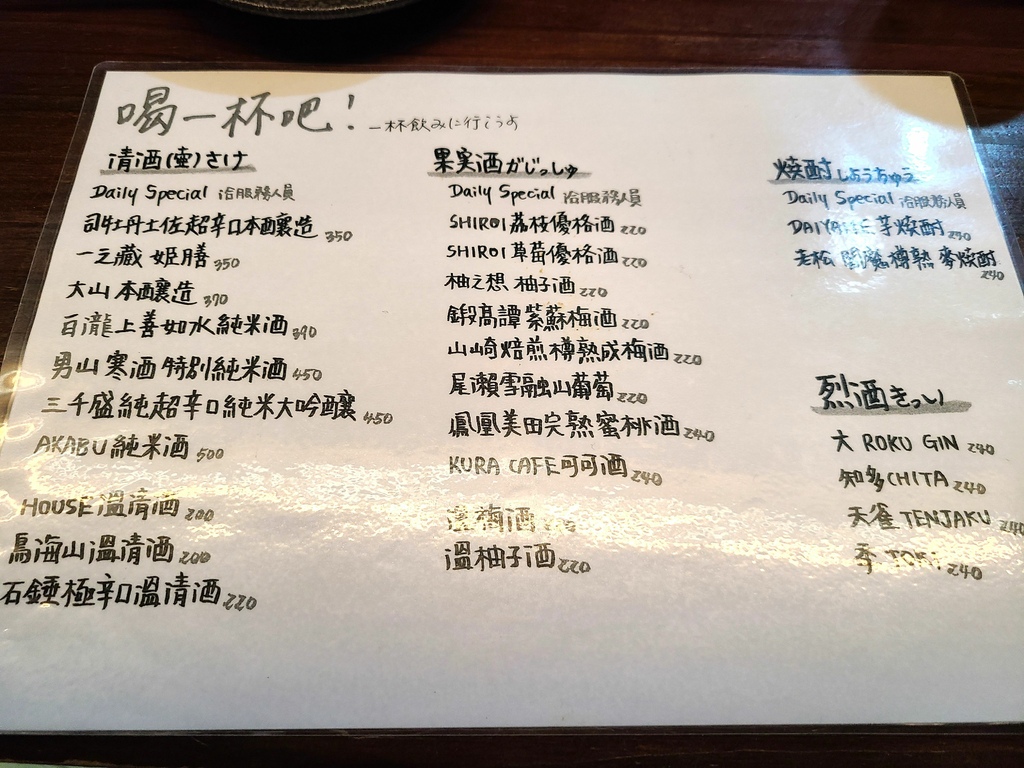 喝一杯吧! 一杯飲みに行こうよ
清酒(壺)さけ
Daily Special 洽服務人員
司牡丹土佐超辛口本釀造 350
一之藏 姫膳 350
大山 本釀造 370
白瀧上善如水純米酒 390
男山 寒酒 特別純米酒 450
三千盛純超辛口純米大吟釀 450
AKABU 純米酒 500
HOUSE溫清酒 200
鳥海山溫清酒 200
石鎚極辛口溫清酒 220
果実酒がじっしゅ
Daily Special 洽服務人員
SHIROI荔枝優格酒 220
SHIROI草莓優格酒 220
柚之想 柚子酒 220
鍛高譚紫蘇梅酒 220
山崎焙煎樽熟成梅酒 220
尾瀨雪融山葡萄 220
鳳凰美田完熟蜜桃酒 240
KURA CAFE可可酒 240
溫梅酒
溫柚子酒 220
焼酎しょうちゅう
Daily Special 洽服務人員
DAIYAME 芋燒酎
老松 閻魔樽熟 麥燒酎 240
烈酒きっい
六 ROKU GIN 240
知多CHITA 240
天雀 TENJAKU 240
季 TOKI 240